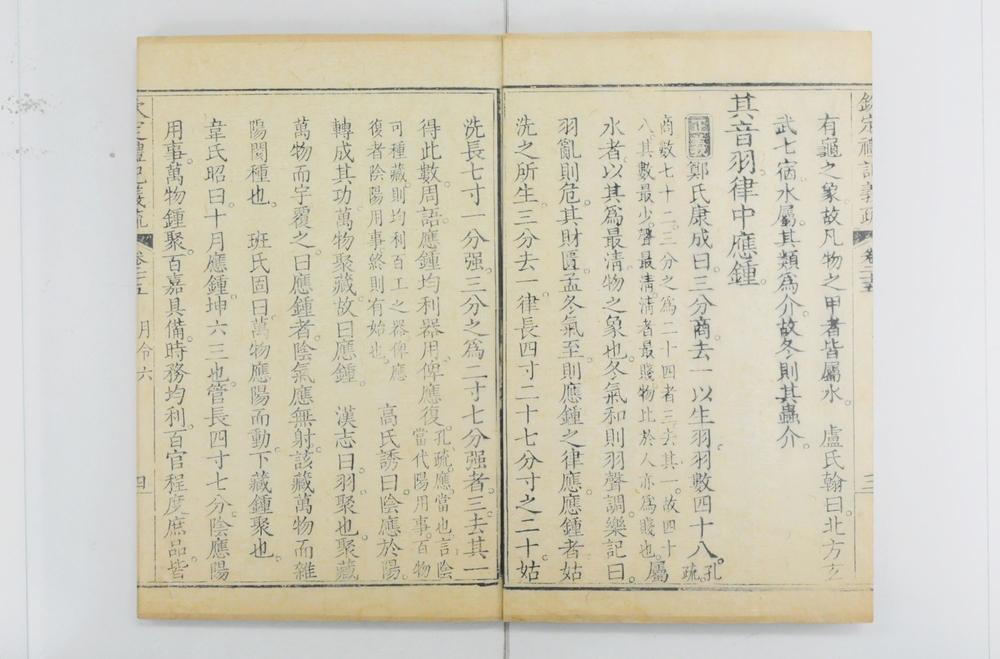 欽定禮記義疏 卷二十五 三
有龜之象故凡物之甲者皆屬水。 盧氏翰曰。北方玄
武七宿水屬。其類為介。故冬則其蟲介。
其音羽律中應鍾。
正義 鄭氏康成曰。三分商去一以生羽。羽數四十八。孔疏。
商數七十二。三分之為二十四者三。去其一。故四十
八。其數最少。聲最清。清者最賤。物比於人亦為賤也。屬
水者。以其為最清物之象也。冬氣和則羽聲調。樂記曰。
羽亂則危。其財匱。孟冬氣至。則應鍾之律應。應鍾者。姑
洗之所生。三分去一。律長四寸二十七分寸之二十。姑
洗長七寸一分强。三分之為二寸七分强者三。去其一
得此數。周語。應鍾均利器用。俾應復。孔疏。應。當也。言陰
當代陽用事。百物
可種藏。則均利百工之器。俾應
復者。陰陽用事。終則有始也。 高氏誘曰。陰應於陽。
轉成其功。萬物聚藏。故曰應鍾。 漢志曰。羽聚也。聚藏
萬物而宇覆之。曰應鍾者。陰氣應無射。該藏萬物而雜
陽閡種也。 班氏固曰。萬物應陽而動。下藏鍾聚也。
韋氏昭曰。十月應鍾坤六三也。管長四寸七分。陰應陽
用事。萬物鍾聚。百嘉具備。時務均利。百官程度庶品。皆
欽定禮記義疏 卷二十五 月令六 四